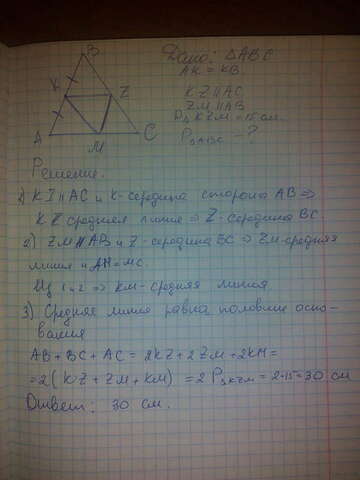 B
Дано: △ABC
AK = KB
K
Z
KZ ∥ AC
ZM ∥ AB
P△KZM = 15 см
A
M
C
P△ABC - ?
Решение.
1) KZ ∥ AC и K-середина стороны AB ⇒
KZ средняя линия ⇒ Z - середина BC.
2) ZM ∥ AB и Z - середина BC ⇒ ZM-средняя
линия и AM = MC.
Из 1 и 2 ⇒ KM - средняя линия.
3) Средняя линия равна половине осно-
вания
AB + BC + AC = 2KZ + 2ZM + 2KM =
= 2 (KZ + ZM + KM) = 2 P△KZM = 2·15 = 30 см
Ответ: 30 см.